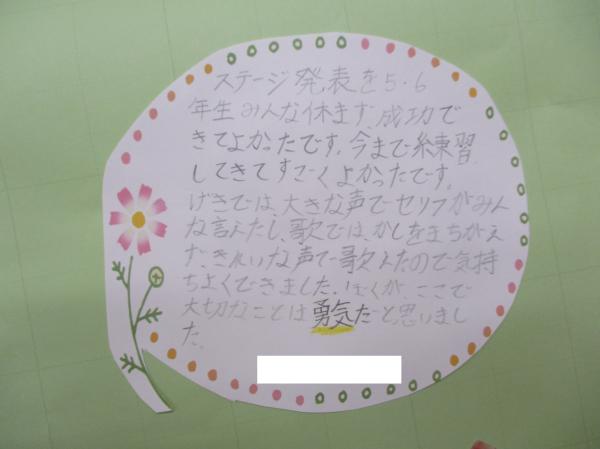 ステージ発表を5・6
年生みんな休まず、成功で
きてよかったです。今まで練習
してきてすごくよかったです。
げきでは、大きな声でセリフがみん
な言えたし、歌では、かしをまちがえ
ず、きれいな声で歌えたので気持
ちよくできました。ぼくが、ここで
大切なことは勇気だと思いまし
た。